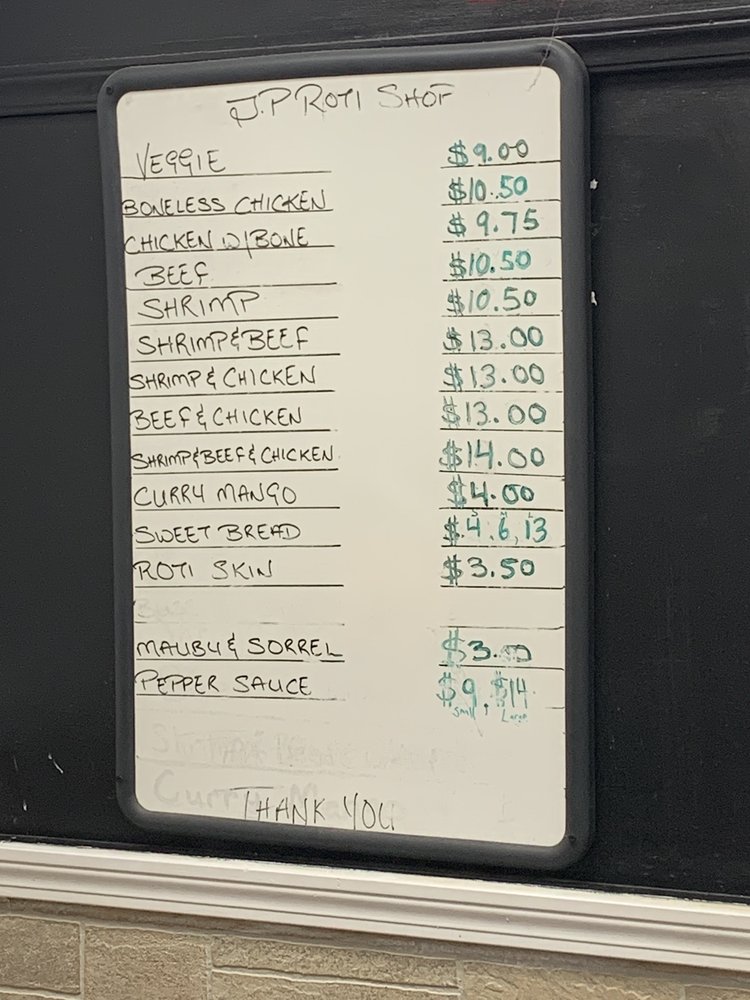 J.P ROTI SHOP
VEGGIE $9.00
BONELESS CHICKEN $10.50
CHICKEN W/BONE $9.75
BEEF $10.50
SHRIMP $10.50
SHRIMP & BEEF $13.00
SHRIMP & CHICKEN $13.00
BEEF & CHICKEN $13.00
SHRIMP & BEEF & CHICKEN $14.00
CURRY MANGO $4.00
SWEET BREAD $.4.6,13
ROTI SKIN $3.50
MAUBY & SORREL $3.50
PEPPER SAUCE $9, $14
Small Large
Curry Ma
THANK YOU